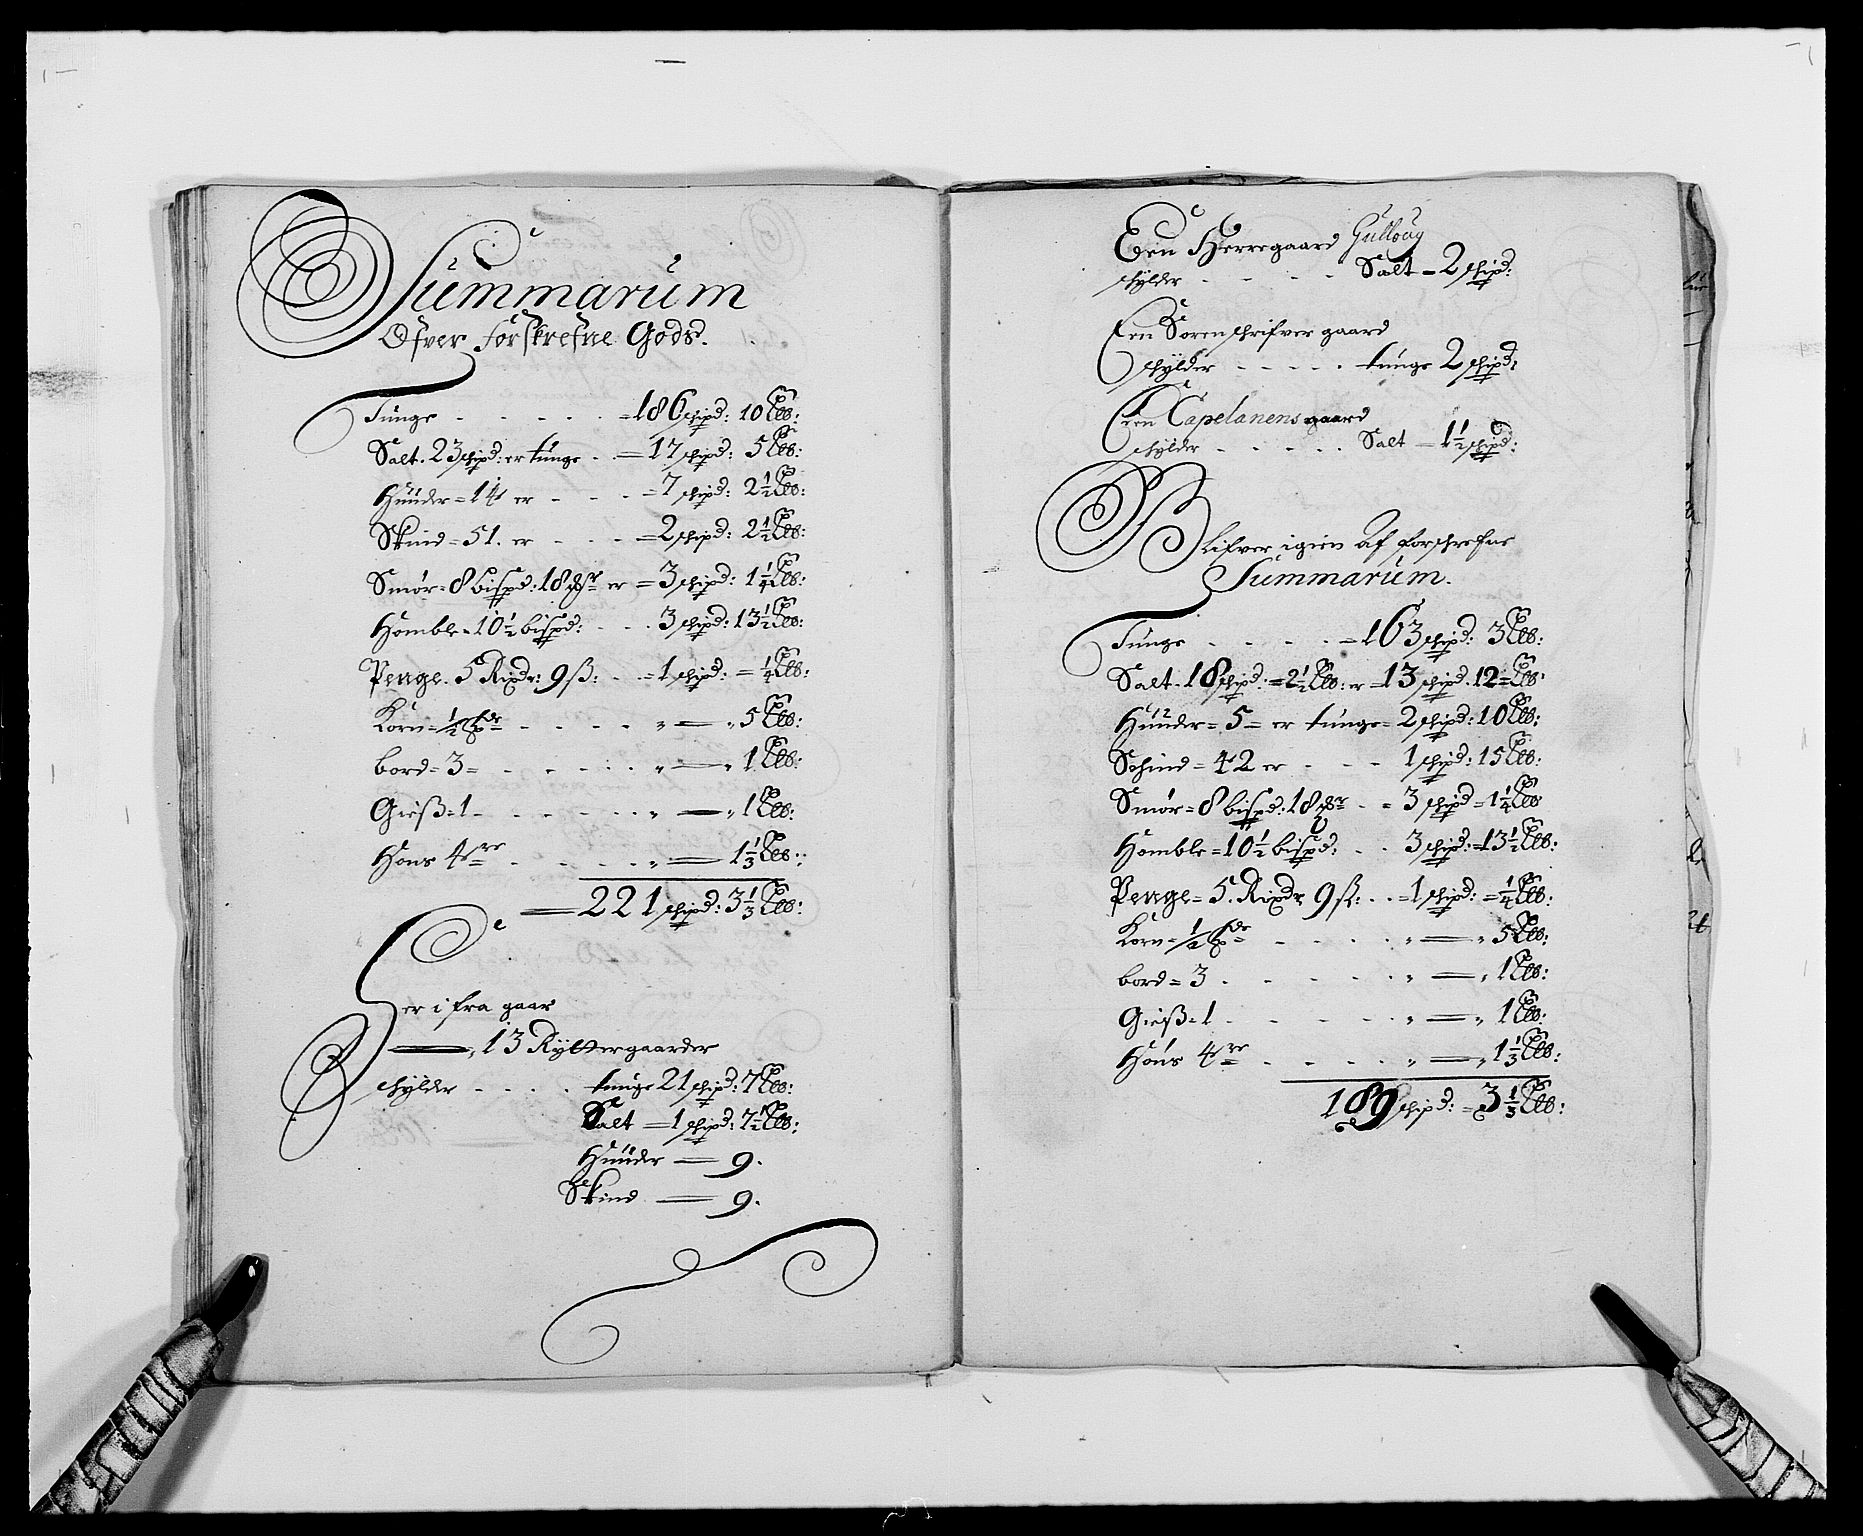 Summarum
Ofver forskrefne Gods.
Tunge - - - - - =186 schipd: 10 Lb:
Salt. 23 schipd: er tunge . = 17 schipd: 5 Lb:
Huuder = 14 er - - - =7 schipd: 2½ Lb:
Skind = 51. er - - - =2 schipd: 2½ Lb:
Smør = 8 bispd: 18 mr er =3 schipd: 1¼ Lb:
Homble = 10½ bispd: - - . 3 schipd: 13½ Lb:
Penge. 5 Rixdr: 9 ß: . . =1 schipd: = ¼ Lb:
Korn = ½ - - - - „ — „ 5 Lb:
bord = 3 = - - - - „ — „ 1 Lb:
Gieß = 1 - - - - „ — „ 1 Lb:
Høns 4re - - - - „ — 1⅓ Lb:
221 schipd: 3⅓ Lb:
Her ifra gaar
13 Rytergaarder
schylder - - - . tunge 21 schipd: 7 Lb:
Salt = 1 schipd: 7½ Lb:
Huuder — 9.
Skind — 9.
Een Herregaard Gulloug
schylder - - - Salt = 2 schipd:
Een Sorenschrifver gaard
schylder - - - - . tunge 2 schipd:
Een Capelanens gaard
schylder - - - . . Salt = 1½ schipd:
Blifver igien af forschrefne
Summarum.
Tunge - - - - =163 schipd: 3 Lb:
Salt = 18 schipd: = 2½ Lb: er = 13 schipd. 12 = Lb:
Huuder = 5 = er tunge = 2 schipd: 10 Lb:
Schind = 42 er - - - 1 schipd: 15 Lb:
Smør = 8 bispd: 18 mr - = 3 schipd = 1¼ Lb
Homble = 10½ bispd: . . 3 schipd: = 13½ Lb:
Penge = 5. Rixdr 9 ß: . . =1 schipd: = ¼ Lb:
Korn = ½ - - - - „ — „ 5 Lb:
bord = 3 . - - - - „ — „ 1 Lb:
Gieß = 1 - - - - „ — „ 1 Lb:
Høns 4re - - - - „ — „ 1⅓ Lb:
189 schipd: = 3⅓ Lb: